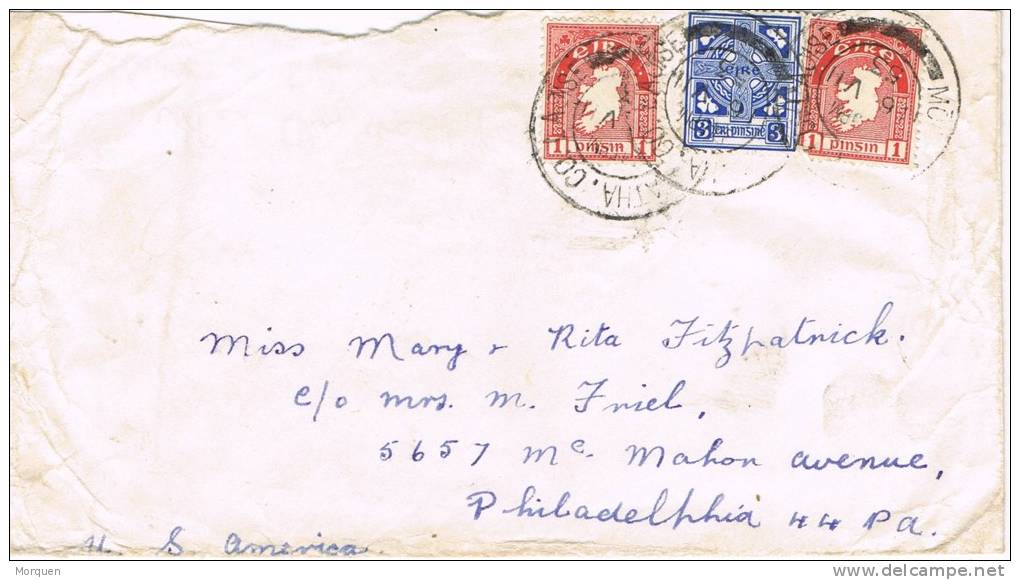 éire
1 pinsin 1
éire
3 3
éire
1 pinsin 1
Miss Mary & Rita Fitzpatrick.
c/o Mrs. M. Friel,
5657 Mc. Mahon avenue,
Philadelphia 44 Pa.
U. S. America.
Morquen
delcampe.net